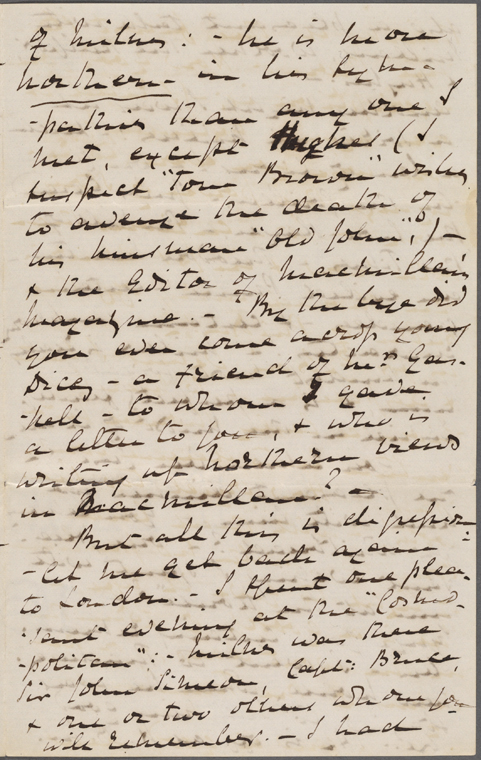 of Milnes: - he is more
northern - in his sym-
-pathies than any one I
met, except Hughes (I
suspect "Tom Brown" wishes
to avenge the death of
his kinsman "Old John",) -
& the Editor of Macmillan's
Magazine. - By the bye did
you ever come across young
Dicey - a friend of Mrs Gas-
-kell - to whom I gave
a letter to you, & who is
writing up northern views
in Macmillan? -
But all this is digression
- let me get back again
to London. - I spent one plea-
-sant evening at the "Cosmo-
-politan": - Milnes was there
Sir John Simeon, Capt: Bruce,
& one or two others whom you
will remember. - I had